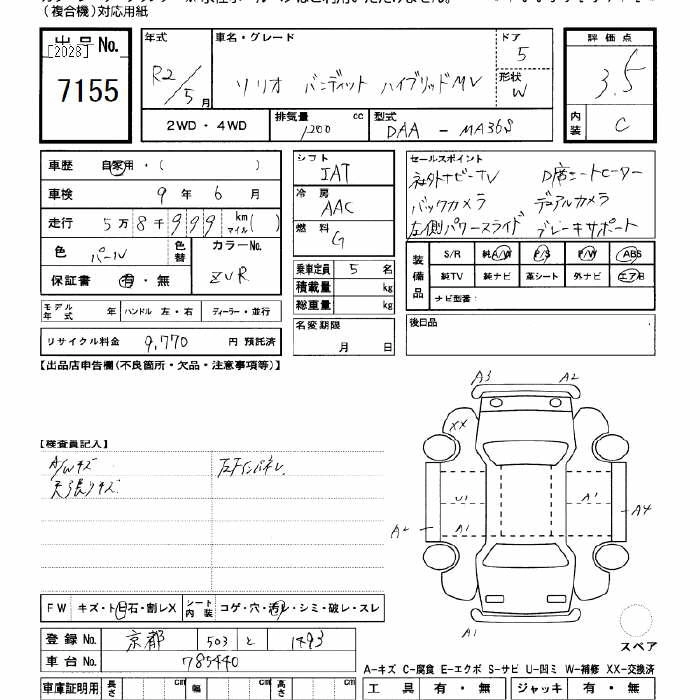 (複合機)対応用紙
出品No.
[2028]
7155
年式
R2/5月
車名・グレード
ソリオ バンディット ハイブリッドMV
ドア
5
形状
W
評価点
3.5
内装
C
2WD・4WD
排気量 1200 cc
型式 DAA - MA36S
車歴 自家用・( )
車検 9年6月
走行 5万8千999 km マイル( )
色 パール
色替
カラーNo. ZVR
保証書 有・無
モデル年式 年 ハンドル 左・右 ディーラー・並行
リサイクル料金 9,770 円 預託済
シフト IAT
冷房 AAC
燃料 G
乗車定員 5 名
積載量 kg
総重量 kg
名変期限
月 日
セールスポイント
社外ナビ-TV D席シートヒーター
バックカメラ デュアルカメラ
左側パワースライド ブレーキサポート
装備品
S/R 純A/W P/S P/W ABS
純TV 純ナビ 革シート 外ナビ エアB
ナビ型番:
後日品
【出品店申告欄(不良箇所・欠品・注意事項等)】
【検査員記入】
A/Wキズ
天張りキズ
左Fインパネ
A3 A2
XX
U1 A1
A2 A1 A4
A1
スペア
FW キズ・ト・ヒ石・割レX
シート内装 コゲ・穴・汚レ・シミ・破レ・スレ
登録No. 京都 503 と 1493
車台No. 785440
A-キズ C-腐食 E-エクボ S-サビ U-凹ミ W-補修 XX-交換済
車庫証明用 長さ cm 幅 cm 高さ cm
工具 有・無 ジャッキ 有・無